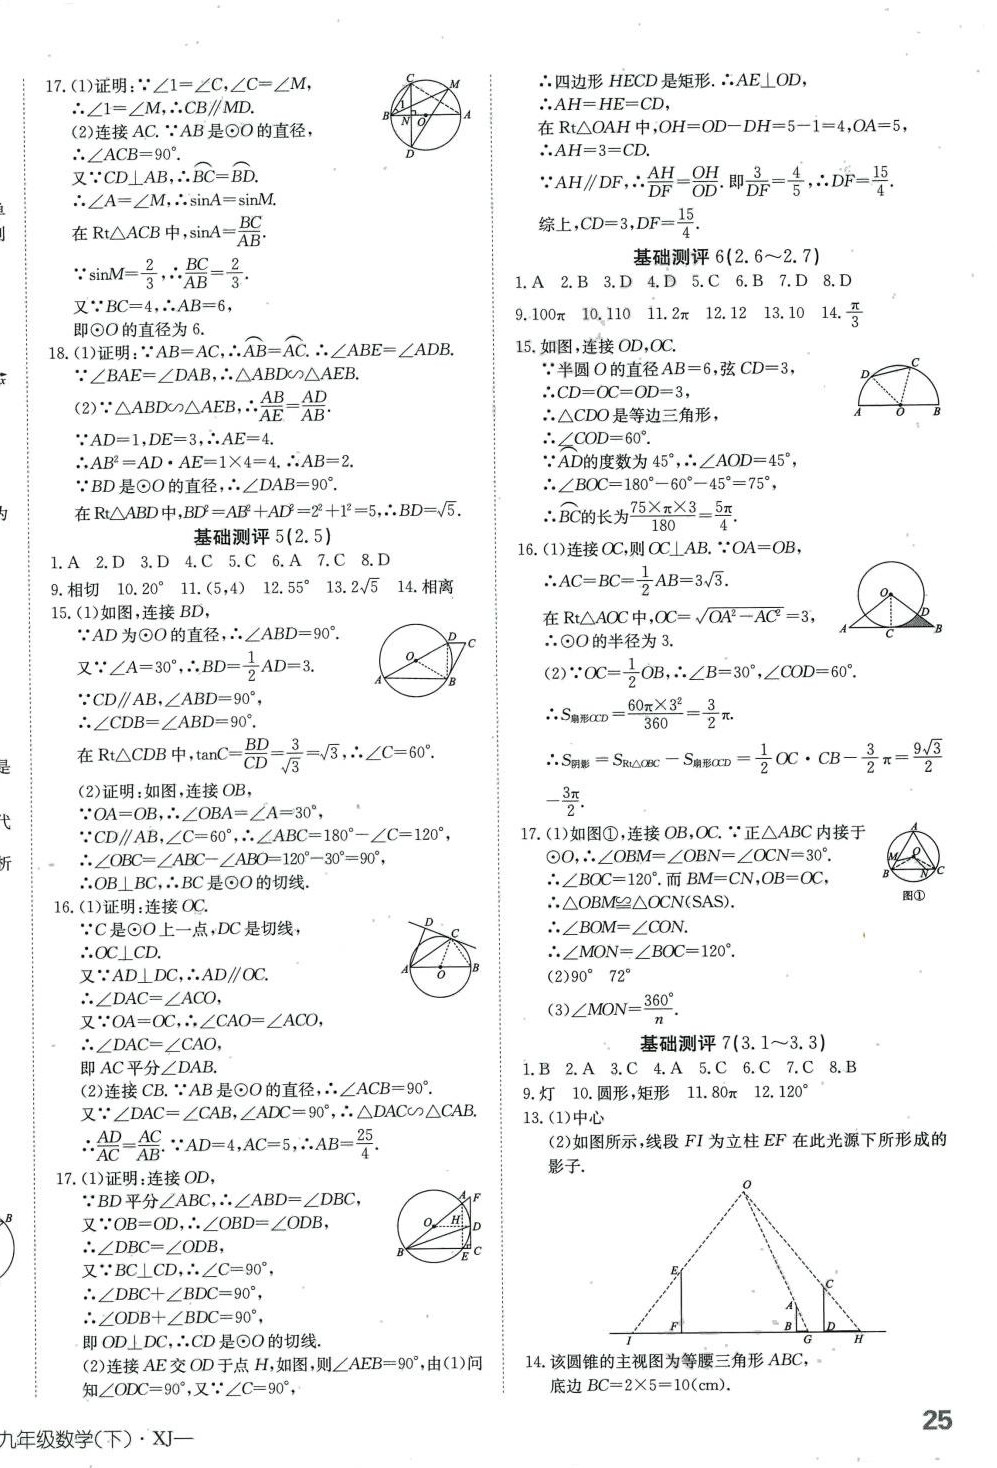 17.(1)证明:∵∠1=∠C,∠C=∠M,
∴∠1=∠M,∴CB∥MD.
(2)连接 AC.∵AB 是⊙O 的直径,
∴∠ACB=90°.
又∵CD⊥AB,∴BC=BD.
∴∠A=∠M,∴sinA=sinM.
在 Rt△ACB 中,sinA=BC/AB.
∵sinM=2/3,∴BC/AB=2/3.
又∵BC=4,∴AB=6,
即⊙O 的直径为 6.
18.(1)证明:∵AB=AC,∴AB=AC.∴∠ABE=∠ADB.
∵∠BAE=∠DAB,∴△ABD∽△AEB.
(2)∵△ABD∽△AEB,∴AB/AE=AD/AB.
∵AD=1,DE=3,∴AE=4.
∴AB²=AD·AE=1×4=4.∴AB=2.
∵BD 是⊙O 的直径,∴∠DAB=90°.
在 Rt△ABD 中,BD²=AB²+AD²=2²+1²=5,∴BD=√5.
基础测评 5(2.5)
1.A 2.D 3.D 4.C 5.C 6.A 7.C 8.D
9.相切 10.20° 11.(5,4) 12.55° 13.2√5 14.相离
15.(1)如图,连接 BD,
∵AD 为⊙O 的直径,∴∠ABD=90°.
又∵∠A=30°,∴BD=1/2 AD=3.
∵CD∥AB,∠ABD=90°,
∴∠CDB=∠ABD=90°.
在 Rt△CDB 中,tanC=BD/CD=3/√3=√3,∴∠C=60°.
(2)证明:如图,连接 OB,
∵OA=OB,∴∠OBA=∠A=30°,
∵CD∥AB,∠C=60°,∴∠ABC=180°-∠C=120°,
∴∠OBC=∠ABC-∠ABO=120°-30°=90°,
∴OB⊥BC,∴BC 是⊙O 的切线.
16.(1)证明:连接 OC.
∵C 是⊙O 上一点,DC 是切线,
∴OC⊥CD.
又∵AD⊥DC,∴AD∥OC.
∴∠DAC=∠ACO,
又∵OA=OC,∴∠CAO=∠ACO,
∴∠DAC=∠CAO,
即 AC 平分∠DAB.
(2)连接 CB.∵AB 是⊙O 的直径,∴∠ACB=90°.
又∵∠DAC=∠CAB,∠ADC=90°,∴△DAC∽△CAB.
∴AD/AC=AC/AB.∵AD=4,AC=5,∴AB=25/4.
17.(1)证明:连接 OD,
∵BD 平分∠ABC,∴∠ABD=∠DBC,
又∵OB=OD,∴∠OBD=∠ODB,
∴∠DBC=∠ODB,
又∵BC⊥CD,∴∠C=90°,
∴∠DBC+∠BDC=90°,
∴∠ODB+∠BDC=90°,
即 OD⊥DC,∴CD 是⊙O 的切线.
(2)连接 AE 交 OD 于点 H,如图,则∠AEB=90°,由(1)问
知∠ODC=90°,又∵∠C=90°,
九年级数学(下)·XJ—
∴四边形 HECD 是矩形.∴AE⊥OD,
∴AH=HE=CD,
在 Rt△OAH 中,OH=OD-DH=5-1=4,OA=5,
∴AH=3=CD.
∵AH∥DF,∴AH/DF=OH/OD.即3/DF=4/5,∴DF=15/4.
综上,CD=3,DF=15/4.
基础测评 6(2.6～2.7)
1.A 2.B 3.D 4.D 5.C 6.B 7.D 8.D
9.100π 10.110 11.2π 12.12 13.10 14.π/3
15.如图,连接 OD,OC.
∵半圆 O 的直径 AB=6,弦 CD=3,
∴CD=OC=OD=3,
∴△CDO 是等边三角形,
∴∠COD=60°.
∵AD的度数为 45°,∴∠AOD=45°,
∴∠BOC=180°-60°-45°=75°,
∴BC的长为75×π×3/180=5π/4.
16.(1)连接 OC,则 OC⊥AB.∵OA=OB,
∴AC=BC=1/2 AB=3√3.
在 Rt△AOC 中,OC=√(OA²-AC²)=3,
∴⊙O 的半径为 3.
(2)∵OC=1/2 OB,∴∠B=30°,∠COD=60°.
∴S扇形OCD=60π×3²/360=3/2 π.
∴S阴影=SRt△OBC-S扇形OCD=1/2 OC·CB-3/2 π=9√3/2
-3π/2.
17.(1)如图①,连接 OB,OC.∵正△ABC 内接于
⊙O,∴∠OBM=∠OBN=∠OCN=30°.
∴∠BOC=120°.而 BM=CN,OB=OC,
∴△OBM≌△OCN(SAS).
∴∠BOM=∠CON.
∴∠MON=∠BOC=120°.
图①
(2)90° 72°
(3)∠MON=360°/n.
基础测评 7(3.1～3.3)
1.B 2.A 3.C 4.A 5.C 6.C 7.C 8.B
9.灯 10.圆形,矩形 11.80π 12.120°
13.(1)中心
(2)如图所示,线段 FI 为立柱 EF 在此光源下所形成的
影子.
O
E
C
A
I F B D G H
14.该圆锥的主视图为等腰三角形 ABC,
底边 BC=2×5=10(cm).
25